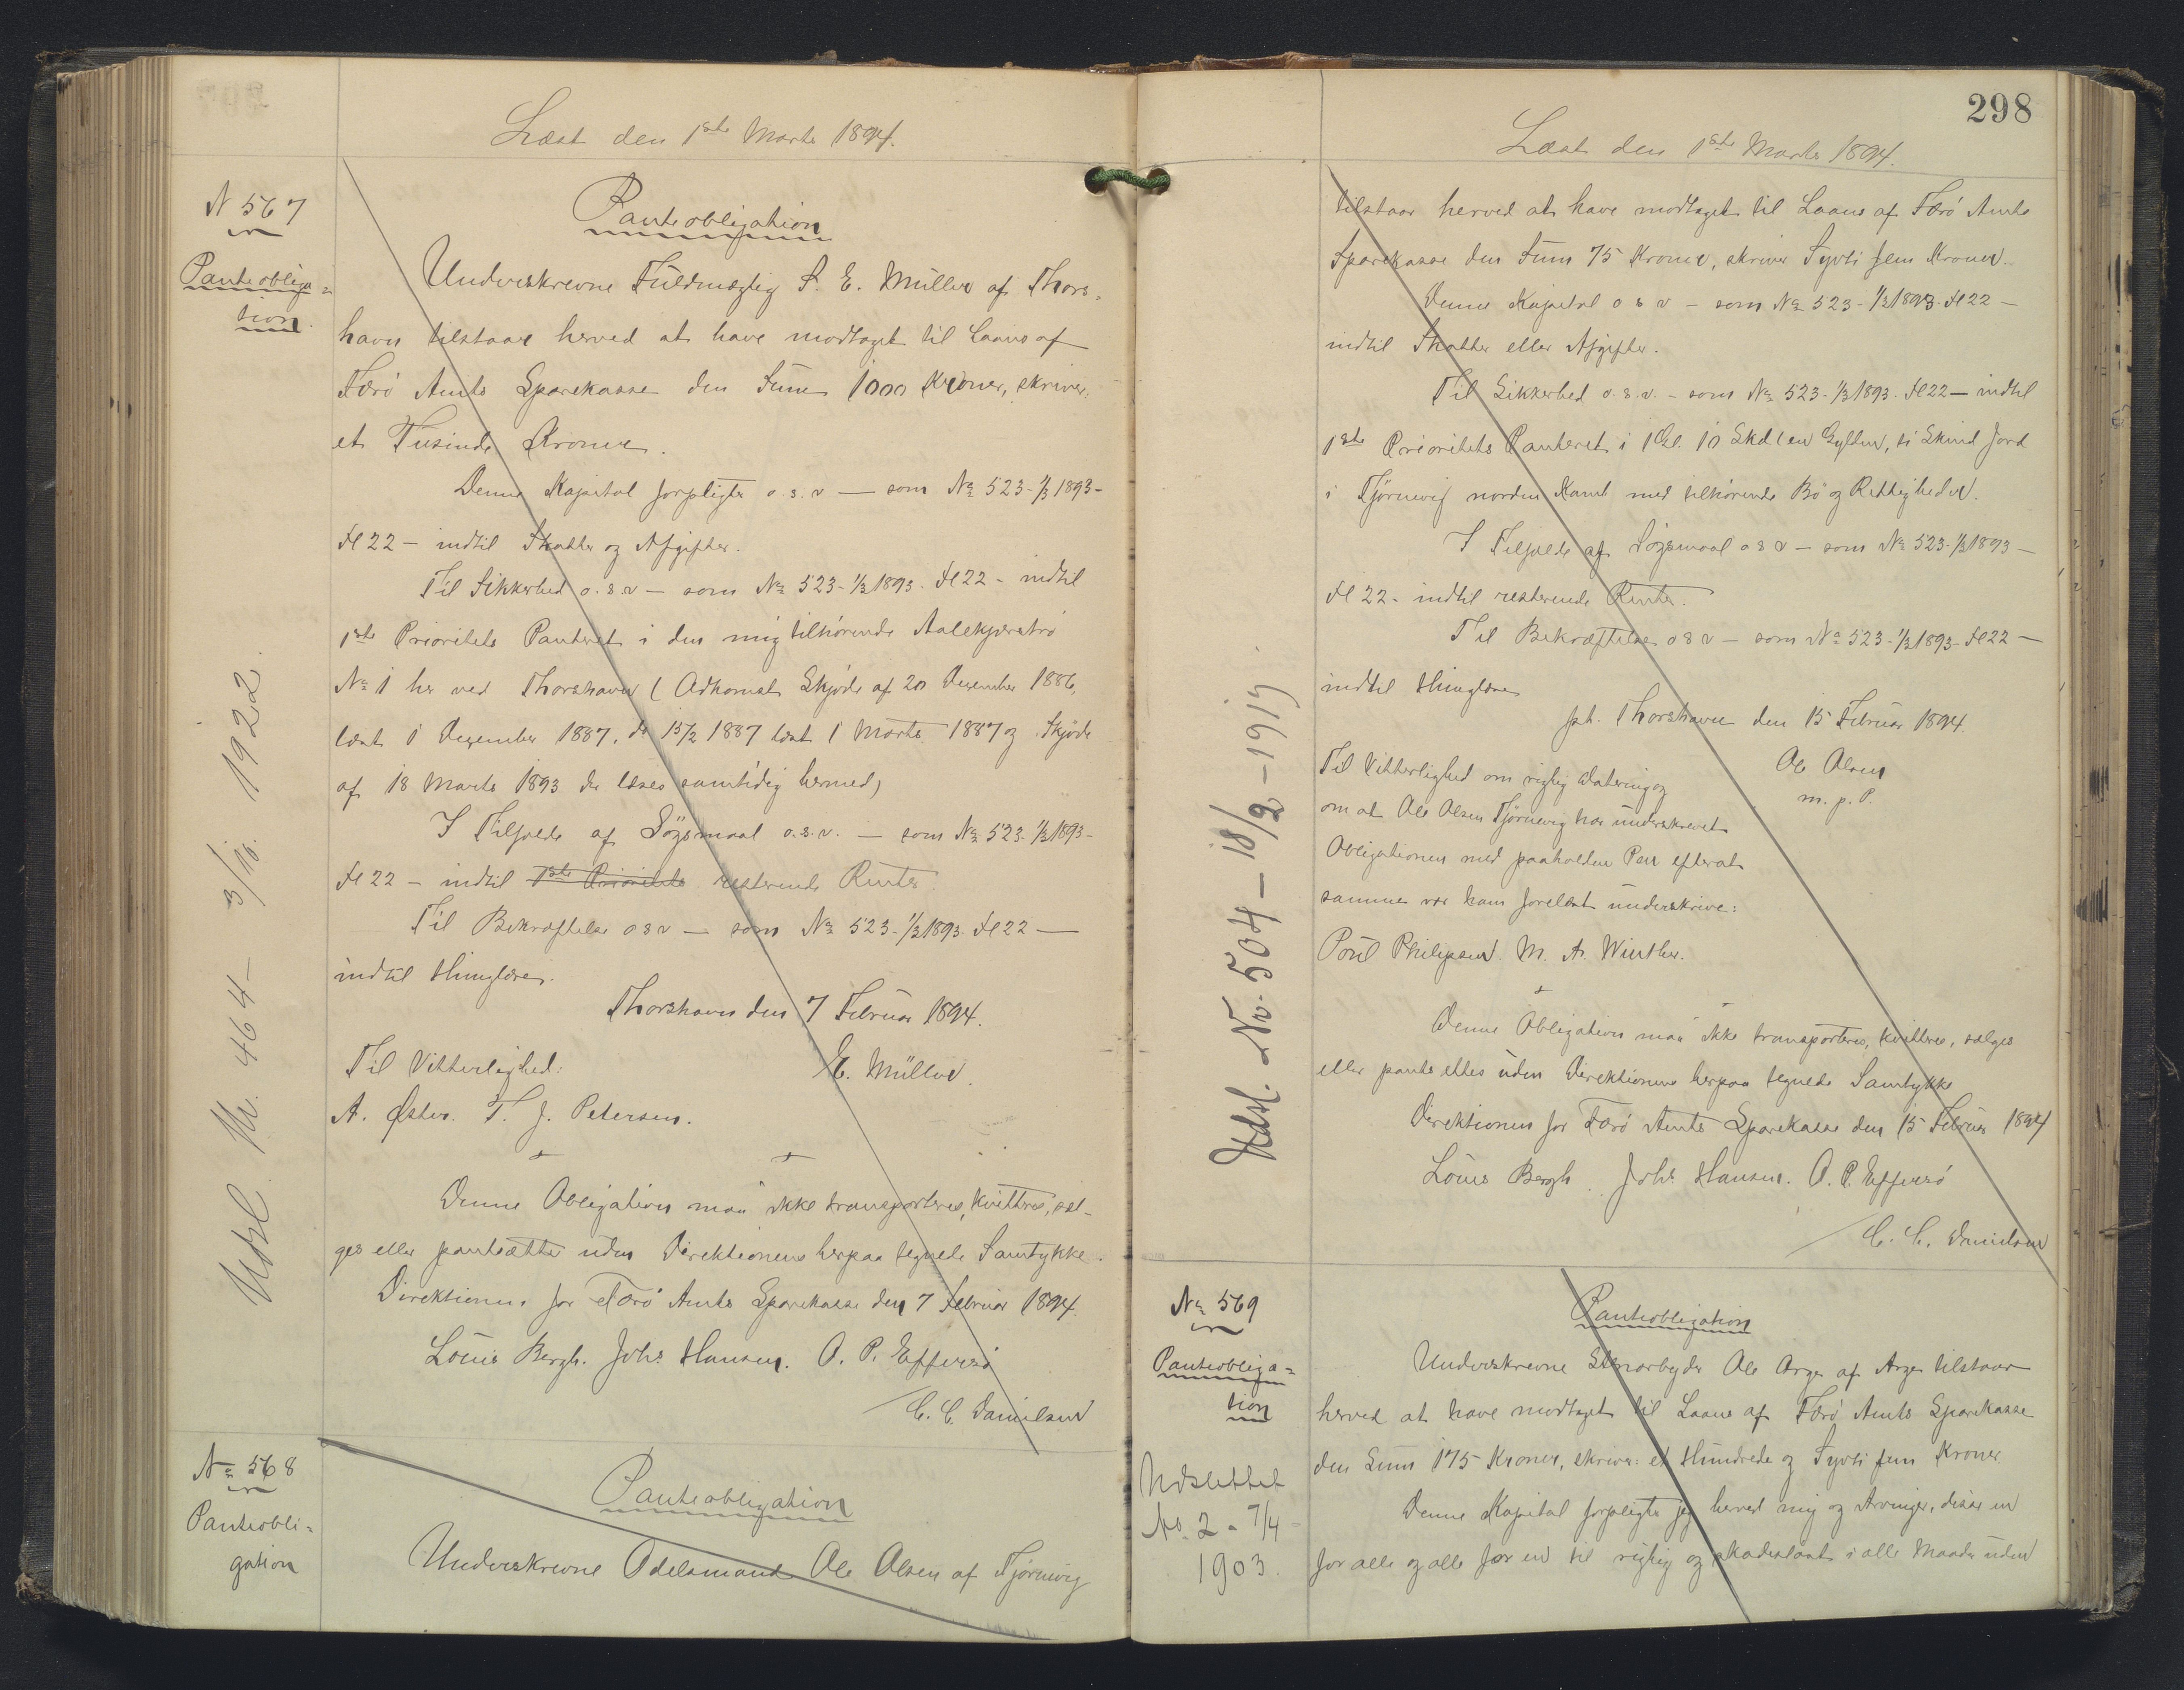 Læst den 1ste Marts 1894.
N 567
Panteobliga=
tion.
Udsl. Nr. 464 – 3/10. 1922.
Panteobligation
Underskrevne Fuldmægtig S. E. Müller af Thors=
havn tilstaar herved at have modtaget til Laans af
Færö Amts Sparekasse den Sum 1000 Kroner, skriver:
et Tusinde Kroner.
Denne Kapital forpligter o. s. v — som No 523-1/3 1893-
Fl 22 – indtil Skatter og Afgifter.
Til Sikkerhed o. s. v – som No 523-1/3 1893. Fl 22 – indtil
1ste Prioritets Panteret i den mig tilhörende
No 1 her ved Thorshavn (Adkomst Skjöde af 20 Dezember 1886,
læst 1 Dezember 1887, do 15/2 1887 læst 1 Marts 1887 og Skjöde
af 18 Marts 1893 der læses samtidig hermed)
I Tilfælde af Sögsmaal o. s. v. – som No 523-1/3 1893-
Fl 22 – indtil 1ste Prioritets resterende Renter.
Til Bekræftelse o s v – som No 523-1/3 1893. Fl 22 —
indtil Thinglæses.
Thorshavn den 7 Februar 1894.
Til Vitterlighed: E. Müller.
A. Öster. T. J. Petersen.
Denne Obligation maa ikke transporteres, kvitteres, sæl-
ges eller pantsættes uden Direktionens herpaa tegnede Samtykke.
Direktionen for Færö Amts Sparekasse den 7 Februar 1894.
Louis Bergh. Johs Hansen. O. P. Effersö
C. C. Danielsen
No 568
Panteobli=
gation
Panteobligation
Underskrevne Odelsmand Ole Olsen af Tjörnevig
298
Læst den 1ste Marts 1894.
tilstaar herved at have modtaget til Laans af Færö Amts
Sparekasse den Sum 75 Kroner, skriver Syvti fem Kroner.
Denne Kapital o s v – som No 523-1/3 1893-Fl 22 –
indtil Skatter eller Afgifter.
Til Sikkerhed o. s. v. – som No 523-1/3 1893. Fl 22 – indtil
1ste Prioritets Panteret i 1 Gl. 10 Skd (en Gylden, ti Skind Jord
i Tjörnevig norden med tilhörende Bö og Rettigheder.
I Tilfælde af Sögsmaal o s v – som No 523-1/3 1893 –
Fl 22 - indtil resterende Renter.
Til Bekræftelse o s v – som No 523-1/3 1893-Fl 22 –
indtil thinglæses
pt. Thorshavn den 15 Februar 1894.
Ole Olsen
m. p. P.
Til Vitterlighed om rigtig Datering og
om at Ole Olsen Tjörnevig har underskrevet
Obligationen med paaholden Pen efterat
samme var ham forelæst underskrive:
Poul Philipsen. M. A. Winther.
Denne Obligation maa ikke transporteres, kvitteres, sælges
eller pantsættes uden Direktionens herpaa tegnede Samtykke
Direktionen for Færö Amts Sparekasse den 15 Februar 1894
Louis Bergh. Johs Hansen. O. P. Effersö
C. C. Danielsen
Udsl. No. 504 – 18/2-1919.
No 569
Panteobliga=
tion
Udslettet
No. 2 - 7/4
1903.
Panteobligation
Underskrevne Stenarbejder Ole Arge af Arge tilstaar
herved at have modtaget til Laans af Færö Amts Sparekasse
den Sum 175 Kroner, skriver: et Hundrede og Syvti fem Kroner
Denne Kapital forpligter jeg herved mig og Arvinger, disse en
for alle og alle for en til rigtig og skadeslöst i alle Maader uden